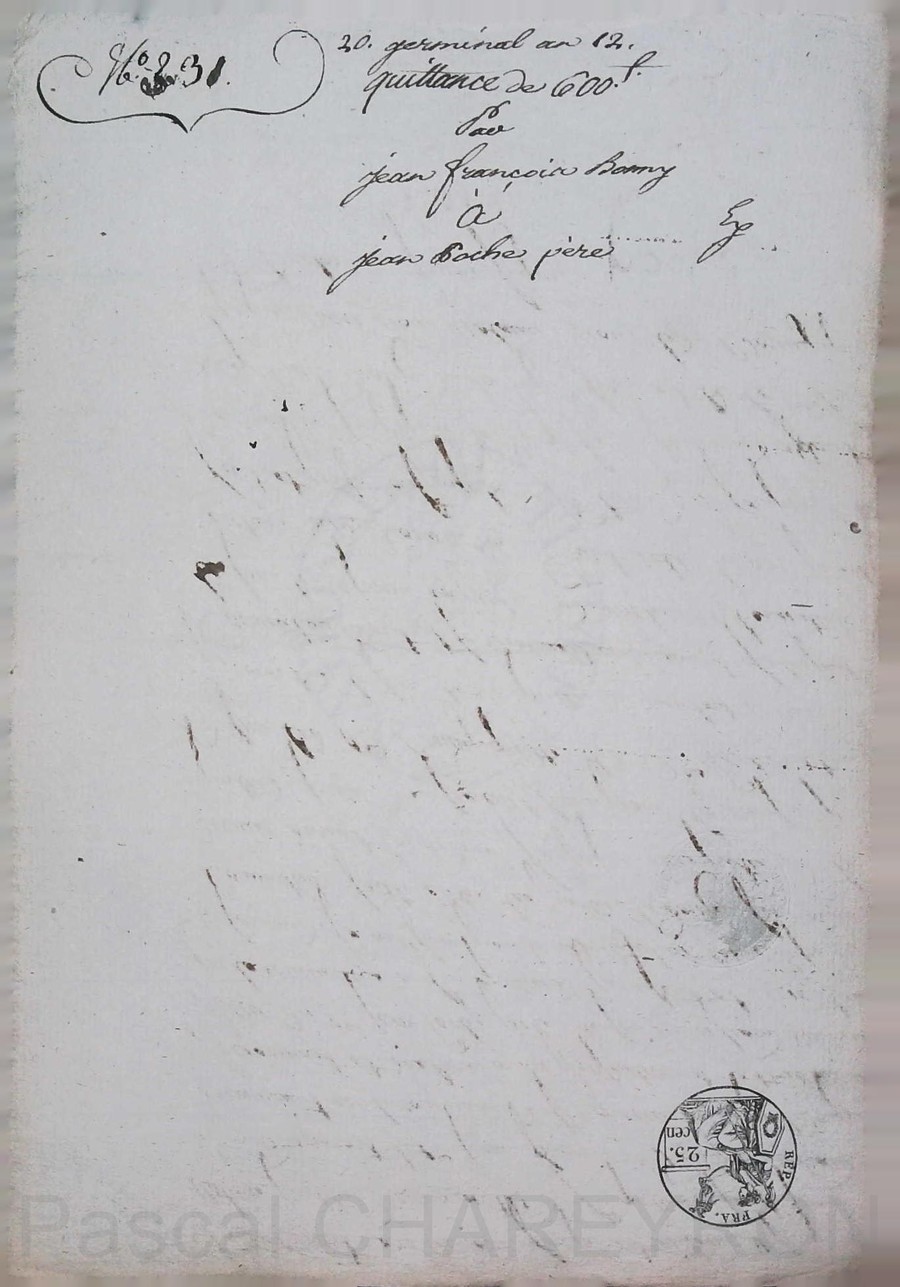 N.º 231.
20. germinal an 12.
quittance de 600.f
Par
jean françois Bomy
à
jean Roche père
Ex
25.
cen
REP.
FRA.
Pascal CHAREYRON